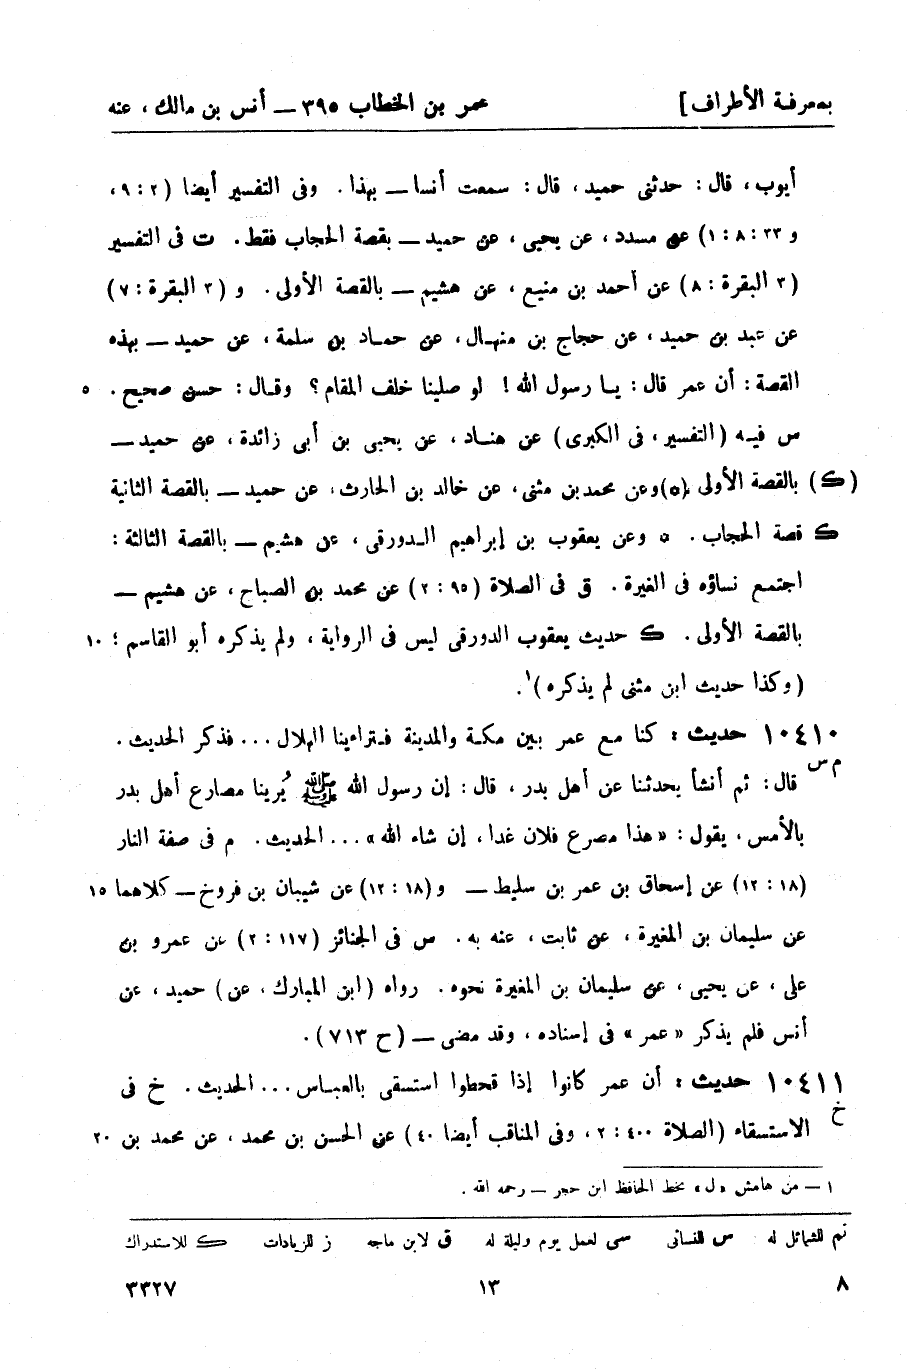 بمعرفة الأطراف] عمر بن الخطاب ٣٩٥ — أنس بن مالك ، عنه
أيوب ، قال : حدثنى حميد ، قال : سمعت أنسا — بهذا . وفى التفسير أيضا (٢ : ٩ ،
و ٣٣ : ٨ : ١) عن مسدد ، عن يحيى ، عن حميد — بقصة الحجاب فقط . ت فى التفسير
(٣ البقرة : ٨) عن أحمد بن منيع ، عن هشيم — بالقصة الأولى . و (٣ البقرة : ٧)
عن عبد بن حميد ، عن حجاج بن منهال ، عن حماد بن سلمة ، عن حميد — بهذه
القصة : أن عمر قال : يا رسول الله ! لو صلينا خلف المقام ؟ وقال : حسن صحيح . ٥
س فيه (التفسير ، فى الكبرى) عن هناد ، عن يحيى بن أبى زائدة ، عن حميد —
(ك) بالقصة الأولى . (*) وعن محمد بن مثنى ، عن خالد بن الحارث ، عن حميد — بالقصة الثانية
ك قصة الحجاب . * وعن يعقوب بن إبراهيم الدورقى ، عن هشيم — بالقصة الثالثة :
اجتمع نساؤه فى الغيرة . ق فى الصلاة (٩٥ : ٢) عن محمد بن الصباح ، عن هشيم —
بالقصة الأولى . ك حديث يعقوب الدورقى ليس فى الرواية ، ولم يذكره أبو القاسم ؛ ١٠
(وكذا حديث ابن مثنى لم يذكره)١ .
١٠٤١٠ حديث : كنا مع عمر بين مكة والمدينة فتراءينا الهلال ... فذكر الحديث .
م س قال : ثم أنشأ يحدثنا عن أهل بدر ، قال : إن رسول الله ﷺ يُرينا مصارع أهل بدر
بالأمس ، يقول : «هذا مصرع فلان غدا ، إن شاء الله» ... الحديث . م فى صفة النار
(١٨ : ١٢) عن إسحاق بن عمر بن سليط — و (١٨ : ١٢) عن شيبان بن فروخ — كلاهما ١٥
عن سليمان بن المغيرة ، عن ثابت ، عنه به . س فى الجنائز (١١٧ : ٢) عن عمرو بن
على ، عن يحيى ، عن سليمان بن المغيرة نحوه . رواه (ابن المبارك ، عن) حميد ، عن
أنس فلم يذكر «عمر» فى إسناده ، وقد مضى — (ح ٧١٣) .
١٠٤١١ حديث : أن عمر كانوا إذا قحطوا استسقى بالعباس ... الحديث . خ فى
خ الاستسقاء (الصلاة ٤٠٠ : ٢ ، وفى المناقب أيضا ٤٠) عن الحسن بن محمد ، عن محمد بن ٢٠
١ — من هامش «ل» بخط الحافظ ابن حجر — رحمه الله .
تم للشمائل له س للنسائى سى لعمل يوم وليلة له ق لابن ماجه ز للزيادات ك للاستدراك
٨ ١٣ ٣٣٢٧